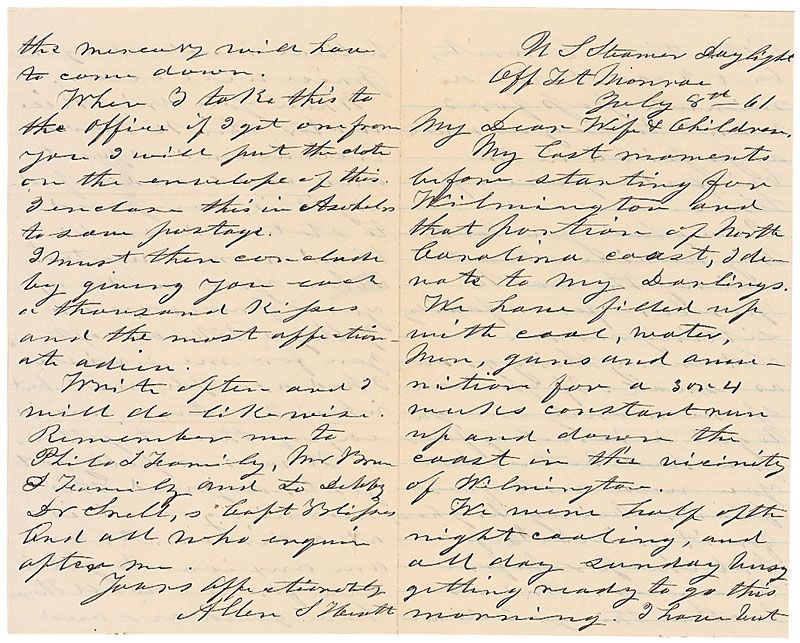 the mercury will have
to come down.
When I take this to
the office if I get one from
you I will put the date
on the envelope of this.
I enclose this in Asahels
to save postage.
I must then conclude
by giving you each
a thousand Kisses
and the most affection-
ate adieu.
Write often and I
will do likewise.
Remember me to
Philo & Family, Mr
& Family and to Libby
Dr Snell,s Capt Blisses
And all who enquire
after me.
Yours affectionately
Allen S Heath
U S Steamer Daylight
Off Ft Monroe
July 8th 61
My Dear Wife & Children,
My last moments
before starting for
Wilmington and
that portion of North
Carolina coast, I de-
vote to my Darlings.
We have filled up
with coal, water,
Men, guns and amu-
nition for a 3 or 4
weeks constant run
up and down the
coast in the vicinity
of Wilmington.
We were half of the
night coaling, and
all day sunday busy
getting ready to go this
morning. I have but